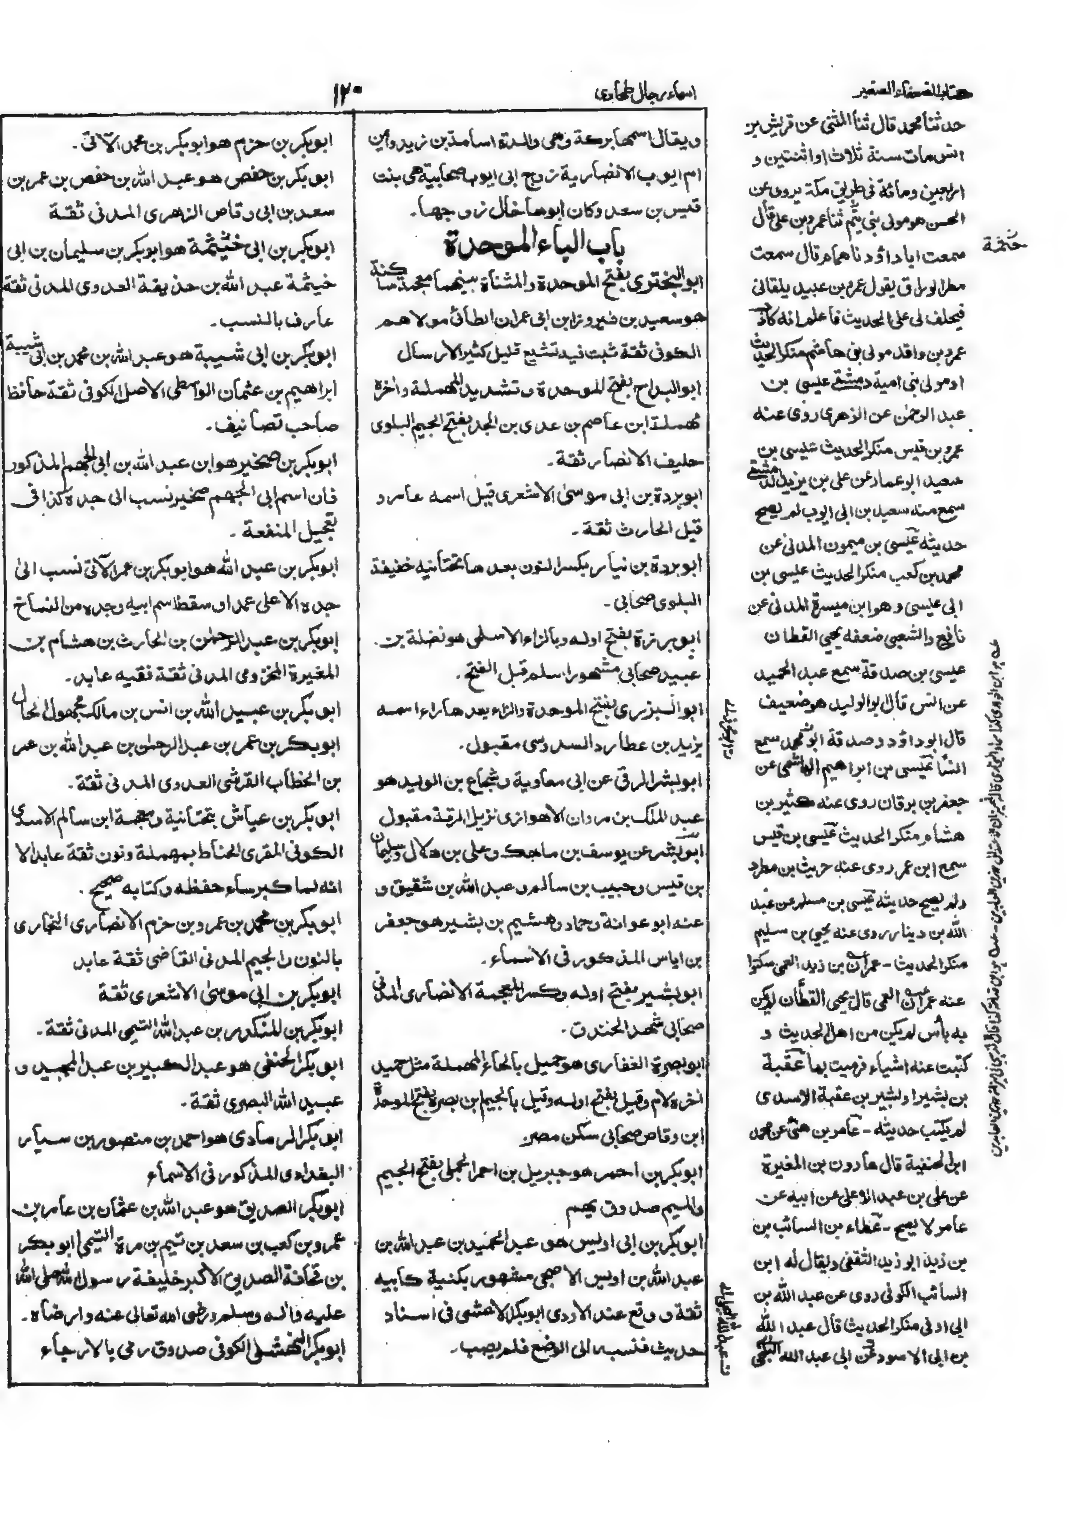 كتاب الضعفاء الصغير
اسماء رجال طحاوی
١٢٠
حدثنا محمد قال ثنا المثنى عن قريش بن
انس مات سنة ثلاث او اثنتين و
اربعين ومائة فى طريق مكة يروى عن
الحسن هو مولى بنى تيم ثنا عمرو بن على قال
سمعت ابا داؤد ناهمام قال سمعت
مطر الوراق يقول عمرو بن عبيد يلقانى
فيحلف لى على الحديث فاعلم انه كاذب
عمرو بن واقد مولى بنى هاشم منكر الحديث
او مولى بنى امية دمشقى عيسى بن
عبد الرحمٰن عن الزهرى روى عنه
عمرو بن قيس منكر الحديث عيسى بن
سعيد ابو عمار عن على بن يزيد له دمشقى
سمع منه سعيد بن ابى ايوب لم يصح
حديثه عيسى بن ميمون المدنى عن
محمد بن كعب منكر الحديث عيسى بن
ابى عيسى وهو ابن ميسرة المدنى عن
نافع والشعبى ضعفه يحيى القطان
عيسى بن صدقة سمع عبد الحميد
عن انس قال ابو الوليد هو ضعيف
قال ابو داؤد وصدقة ابو محمد سمع
انسا عيسى بن ابراهيم الهاشمى عن
جعفر بن برقان روى عنه كثير بن
هشام منكر الحديث عيسى بن قيس
سمع ابن عمر روى عنه حريث بن مطر
ولم يصح حديثه عيسى بن مسلم عن عبد
الله بن دينار روى عنه يحيى بن سليم
منكر الحديث - عمران بن زيد العمى
عنه عمران العمى قال يحيى القطان لم يكن
به بأس لم يكن من اهل الحديث و
كتبت عنه اشياء فرميت بها عقبة
بن بشير او بشير بن عقبة الاسدى
لم يكتب حديثه - عامر بن هنى عن محمد
ابن الحنفية قال هارون بن المغيرة
عن على بن عبد الاعلى عن ابيه عن
عامر لا يصح - عطاء بن السائب بن
بن زيد ابو زيد الثقفى ويقال له ابن
السائب الكوفى روى عن عبد الله بن
ابى اوفى منكر الحديث قال عبد الله
بن ابى الاسود عن ابى عبد الله البلخى
خيثمة
ويقال اسمها بركة وهى والدة اسامة بن زيد وايمن
ام ايوب الانصارية زوج ابى ايوب صحابية هى بنت
قيس بن سعد وكان ابوها خال زوجها۔
باب الباء الموحدة
ابو البخترى بفتح الموحدة والمثناة بينهما معجمة ساكنة
هو سعيد بن فيروز ابن ابى عمران الطائى مولاهم
الكوفى ثقة ثبت فيه تشيع قليل كثير الارسال
ابو البداح بفتح الموحدة وتشديد المهملة واخره
مهملة ابن عاصم بن عدى بن الجد بفتح الجيم البلوى
حليف الانصار ثقة۔
ابو بردة بن ابى موسىٰ الاشعرى قيل اسمه عامر و
قيل الحارث ثقة۔
ابو بردة بن نيار بكسر النون بعدها تحتانية خفيفة
البلوى صحابى۔
ابو برزة بفتح اوله وبالزاء الاسلمى هو نضلة بن
عبيد صحابى مشهور اسلم قبل الفتح۔
ابو البزرى بفتح الموحدة والزاء بعدها راء اسمه
يزيد بن عطارد السدوسى مقبول۔
ابو بشر الرقى عن ابى معاوية وشجاع بن الوليد هو
عبد الملك بن مروان الاهوازى نزيل الرقة مقبول
ابو بشر عن يوسف بن ماهك وعلى بن هلال وسليمان
بن قيس وحبيب بن سالم وعبد الله بن شقيق و
عنه ابو عوانة وحماد وهشيم بن بشير هو جعفر
بن اياس المذكور فى الاسماء۔
ابو بشير بفتح اوله وكسر المعجمة الانصارى المدنى
صحابى شهد الخندق۔
ابو بصرة الغفارى هو حميل بالحاء المهملة مثل حميد
اخره لام وقيل بفتح اوله وقيل بالجيم بن بصرة بفتح الموحدة
ابن وقاص صحابى سكن مصر
ابو بكر بن احمر هو جبريل بن احمر الجملى بفتح الجيم
والميم صدوق يهم
ابو بكر بن ابى اويس هو عبد الحميد بن عبد الله بن
عبد الله بن اويس الاصبحى مشهور بكنية كابيه
ثقة ووقع عند الازدى ابو بكر الاعشى فى اسناد
حديث فنسبه الى الوضع فلم يصب۔
ابو بكر بن حزم هو ابو بكر بن محمد الآتى۔
ابو بكر بن حفص هو عبد الله بن حفص بن عمر بن
سعد بن ابى وقاص الزهرى المدنى ثقة
ابو بكر بن ابى خيثمة هو ابو بكر بن سليمان بن ابى
خيثمة عبد الله بن حذيفة العدوى المدنى ثقة
عارف بالنسب۔
ابو بكر بن ابى شيبة هو عبد الله بن محمد بن ابى شيبة
ابراهيم بن عثمان الواسطى الاصل الكوفى ثقة حافظ
صاحب تصانيف۔
ابو بكر بن صخير هو ابن عبد الله بن ابى الجهم المذكور
فان اسم ابى الجهم صخير نسب الى جده كذا فى
تعجيل المنفعة۔
ابو بكر بن عبد الله هو ابو بكر بن عمر الآتى نسب الىٰ
جده الاعلى عمدا و سقط اسم ابيه وجده من النساخ
ابو بكر بن عبد الرحمٰن بن الحارث بن هشام بن
المغيرة المخزومى المدنى ثقة فقيه عابد۔
ابو بكر بن عبيد الله بن انس بن مالك مجهول الحال
ابو بكر بن عمر بن عبد الرحمٰن بن عبد الله بن عمر
بن الخطاب القرشى العدوى المدنى ثقة۔
ابو بكر بن عياش بتحتانية ومعجمة ابن سالم الاسدى
الكوفى المقرى الحناط بمهملة ونون ثقة عابد الا
انه لما كبر ساء حفظه وكتابه صحيح۔
ابو بكر بن محمد بن عمرو بن حزم الانصارى النجارى
بالنون والجيم المدنى القاضى ثقة عابد
ابو بكر بن ابى موسىٰ الاشعرى ثقة
ابو بكر بن المنكدر بن عبد الله التيمى المدنى ثقة۔
ابو بكر الحنفى هو عبد الكبير بن عبد المجيد و
عبيد الله البصرى ثقة۔
ابو بكر الرمادى هو احمد بن منصور بن سيار
البغدادى المذكور فى الاسماء
ابو بكر الصديق هو عبد الله بن عثمان بن عامر بن
عمرو بن كعب بن سعد بن تيم بن مرة التيمى ابو بكر
بن قحافة الصديق الاكبر خليفة رسول الله صلى الله
عليه واله وسلم ورضى الله تعالىٰ عنه وارضاه۔
ابو بكر النهشلى الكوفى صدوق رمى بالارجاء